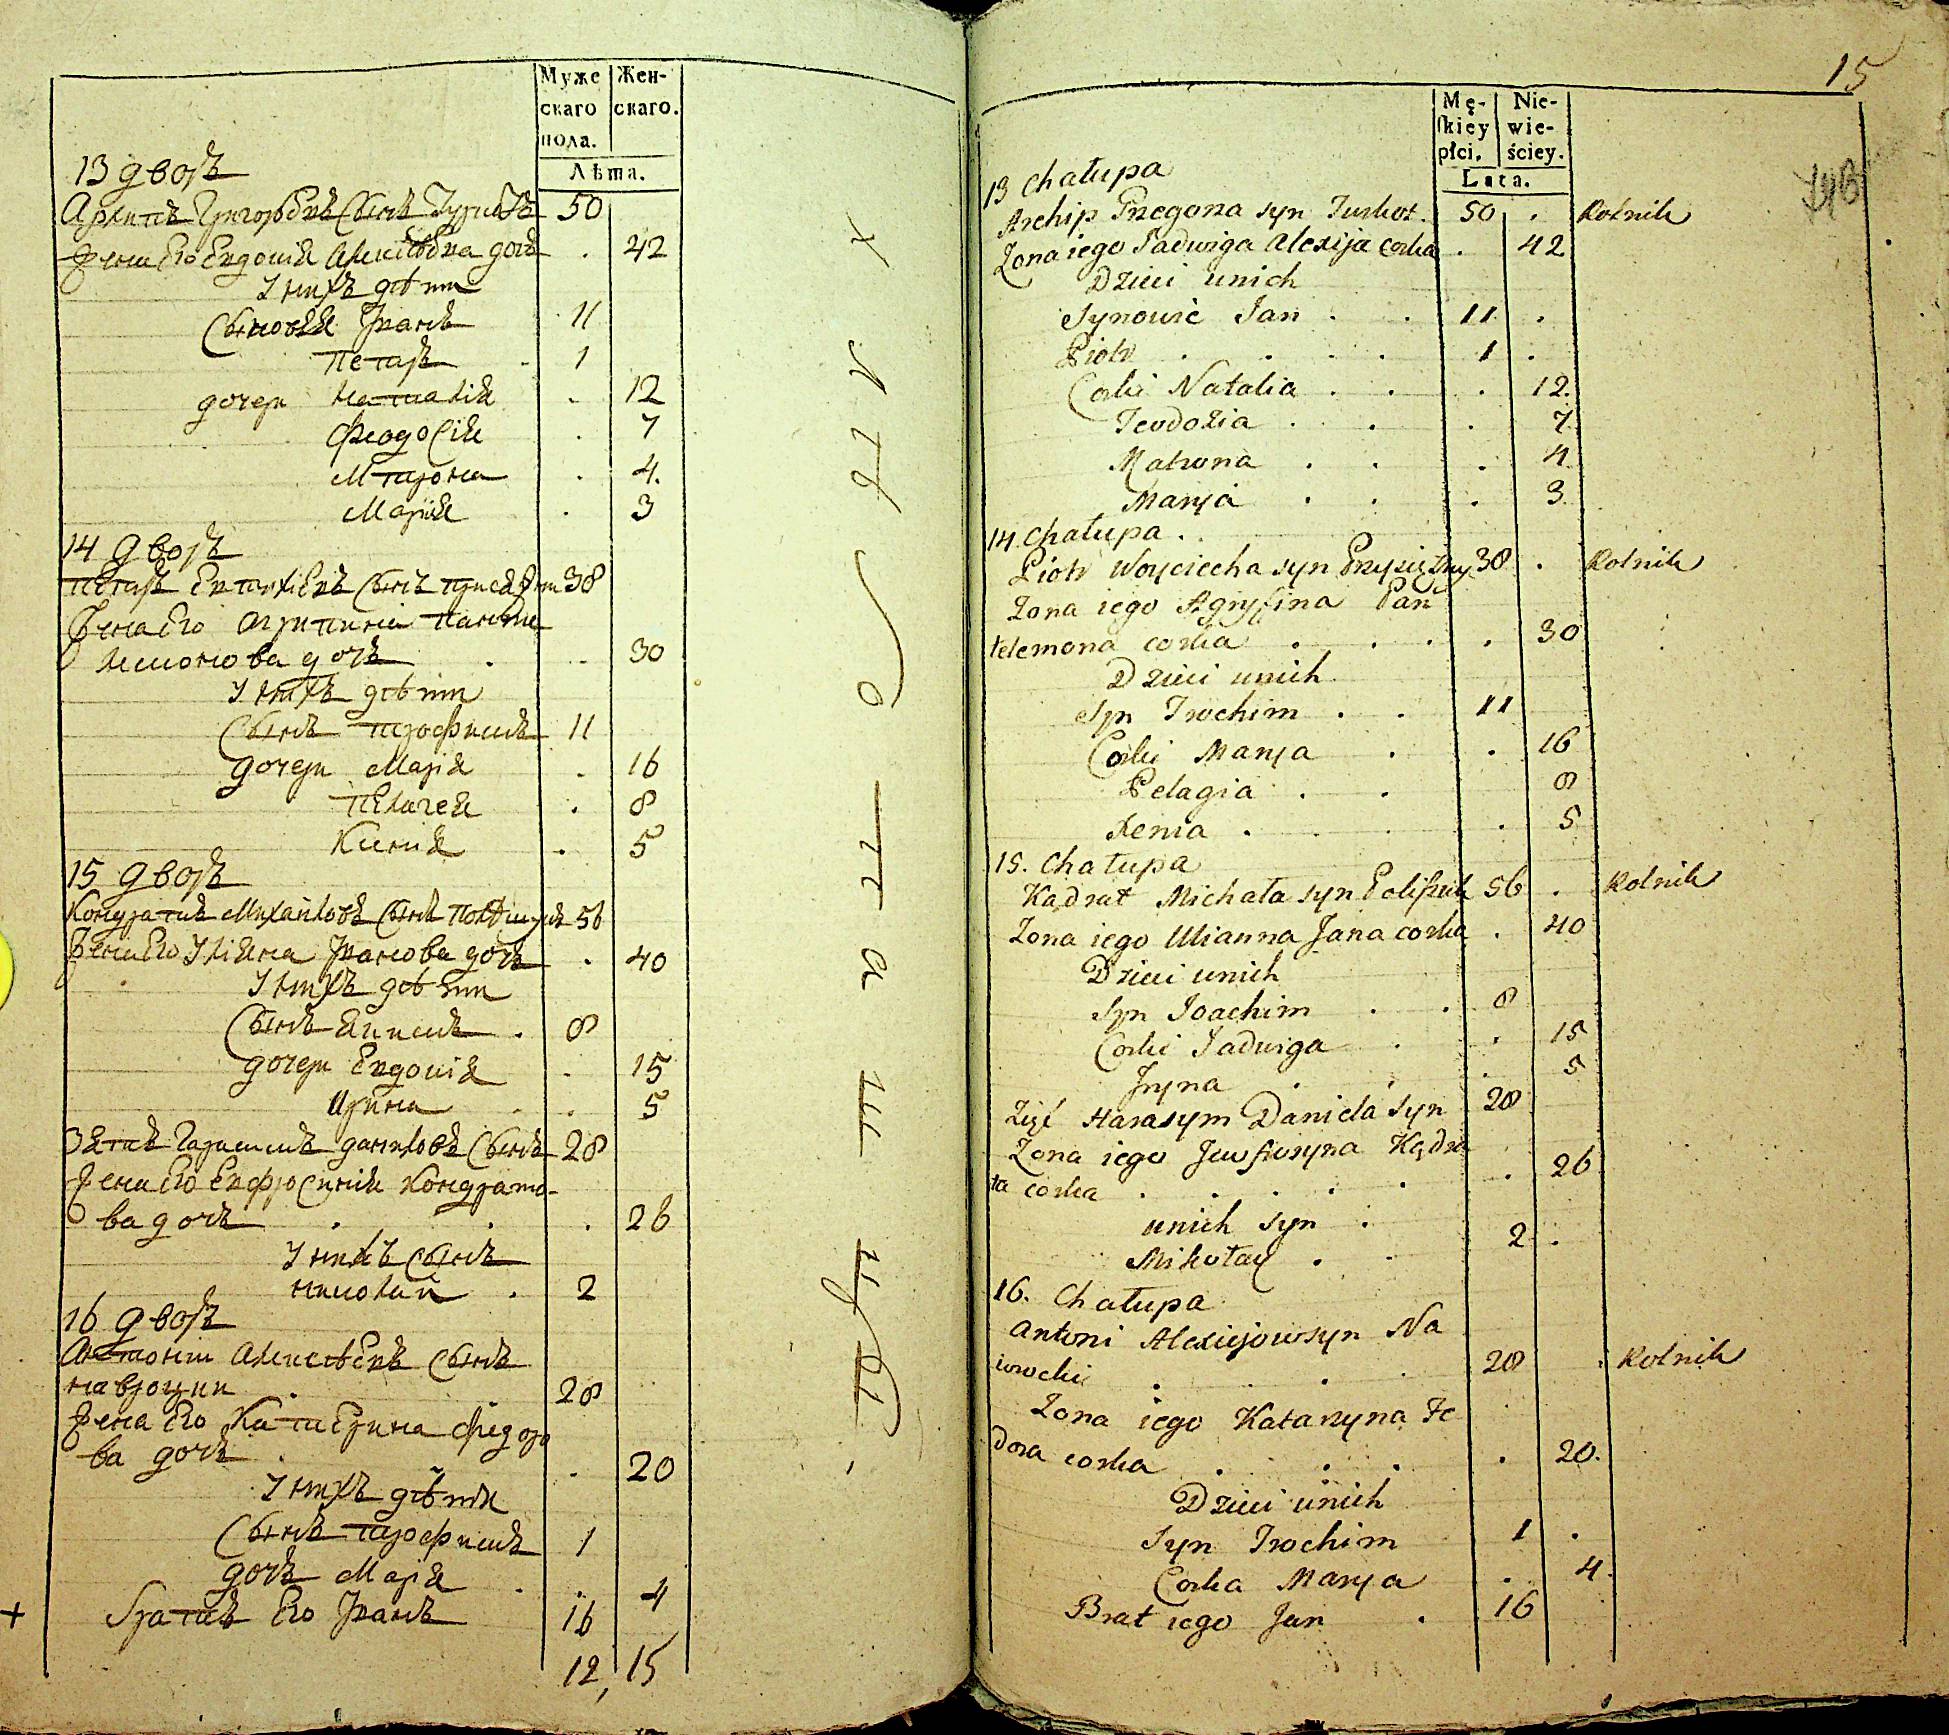 Муже скаго пола.
Жен- скаго.
Лѣта.
13 дворъ
Архипъ Григорьевъ сынъ 50
жена его Евдокия Алексѣева дочь . 42
У нихъ дѣти
Сыновья Иванъ 11
Петръ . 1
дочери Наталія . 12
Феодосія . 7
Матрона . 4.
Марія . 3
14 дворъ
Петръ сынъ 38
жена его Агрипина Панте
лимонова дочь . . 30
У нихъ дѣти
Сынъ Трофимъ 11
дочери Марія . 16
Пелагея . 8
Ксенія . 5
15 дворъ
Кондратъ Михайловъ сынъ Полищукъ 56
жена его Уліяна Иванова дочь . 40
У нихъ дѣти
Сынъ Якимъ . 8
дочери Евдокія . 15
Ирина . . 5
Зять Гарасимъ Даниловъ сынъ 28
жена его Евфросинія Кондрато-
ва дочь . . . 26
У нихъ сынъ
Николай . 2
16 дворъ
Антоній Алексѣевъ сынъ
Навроцки . 28
жена его Катерина Федоро
ва дочь . . 20
У нихъ дѣти
Сынъ Трофимъ 1
дочь Марія . . 4
+ Братъ его Иванъ 16
12, 15
15
Mę- ſkiey płci.
Nie- wie- ściey.
Lata.
13 Chałupa
Archip Grzegorza syn 50 . Rolnik
Zona iego Jadwiga Alexija corka . 42
Dzieci unich
Synowie Jan . . 11 .
Piotr . . . . 1 .
Corki Natalia . . . 12.
Teodozia . . . 7
Matrona . . . 4
Marya . . . 3
14 Chałupa .
Piotr Woyciecha syn 38 . Rolnik
Zona iego Agryfina Pan
telemona corka . . . . 30
Dzieci unich
Syn Trochim . . 11
Corki Marya . . 16
Pelagia . . 8
Xenia . . . 5
15. Chałupa
Kądrat Michała syn Poliſzuk 56 . Rolnik
Zona iego Ulianna Jana corka . 40
Dzieci unich
Syn Joachim . . 8
Corki Jadwiga . . 15
Jryna . . . 5
Zięć Harasym Daniela syn 28
Zona iego Jewfrozyna Kądra
ta corka . . . . . . 26
unich syn .
Mikołay . . 2 .
16. Chałupa
Antoni Alexiejow syn Na
wrocki . . . 28 . Rolnik
Zona iego Katarzyna Fe
dora corka . . . . 20.
Dzieci unich
Syn Trochim 1 .
Corka Marya . 4
Brat iego Jan . 16